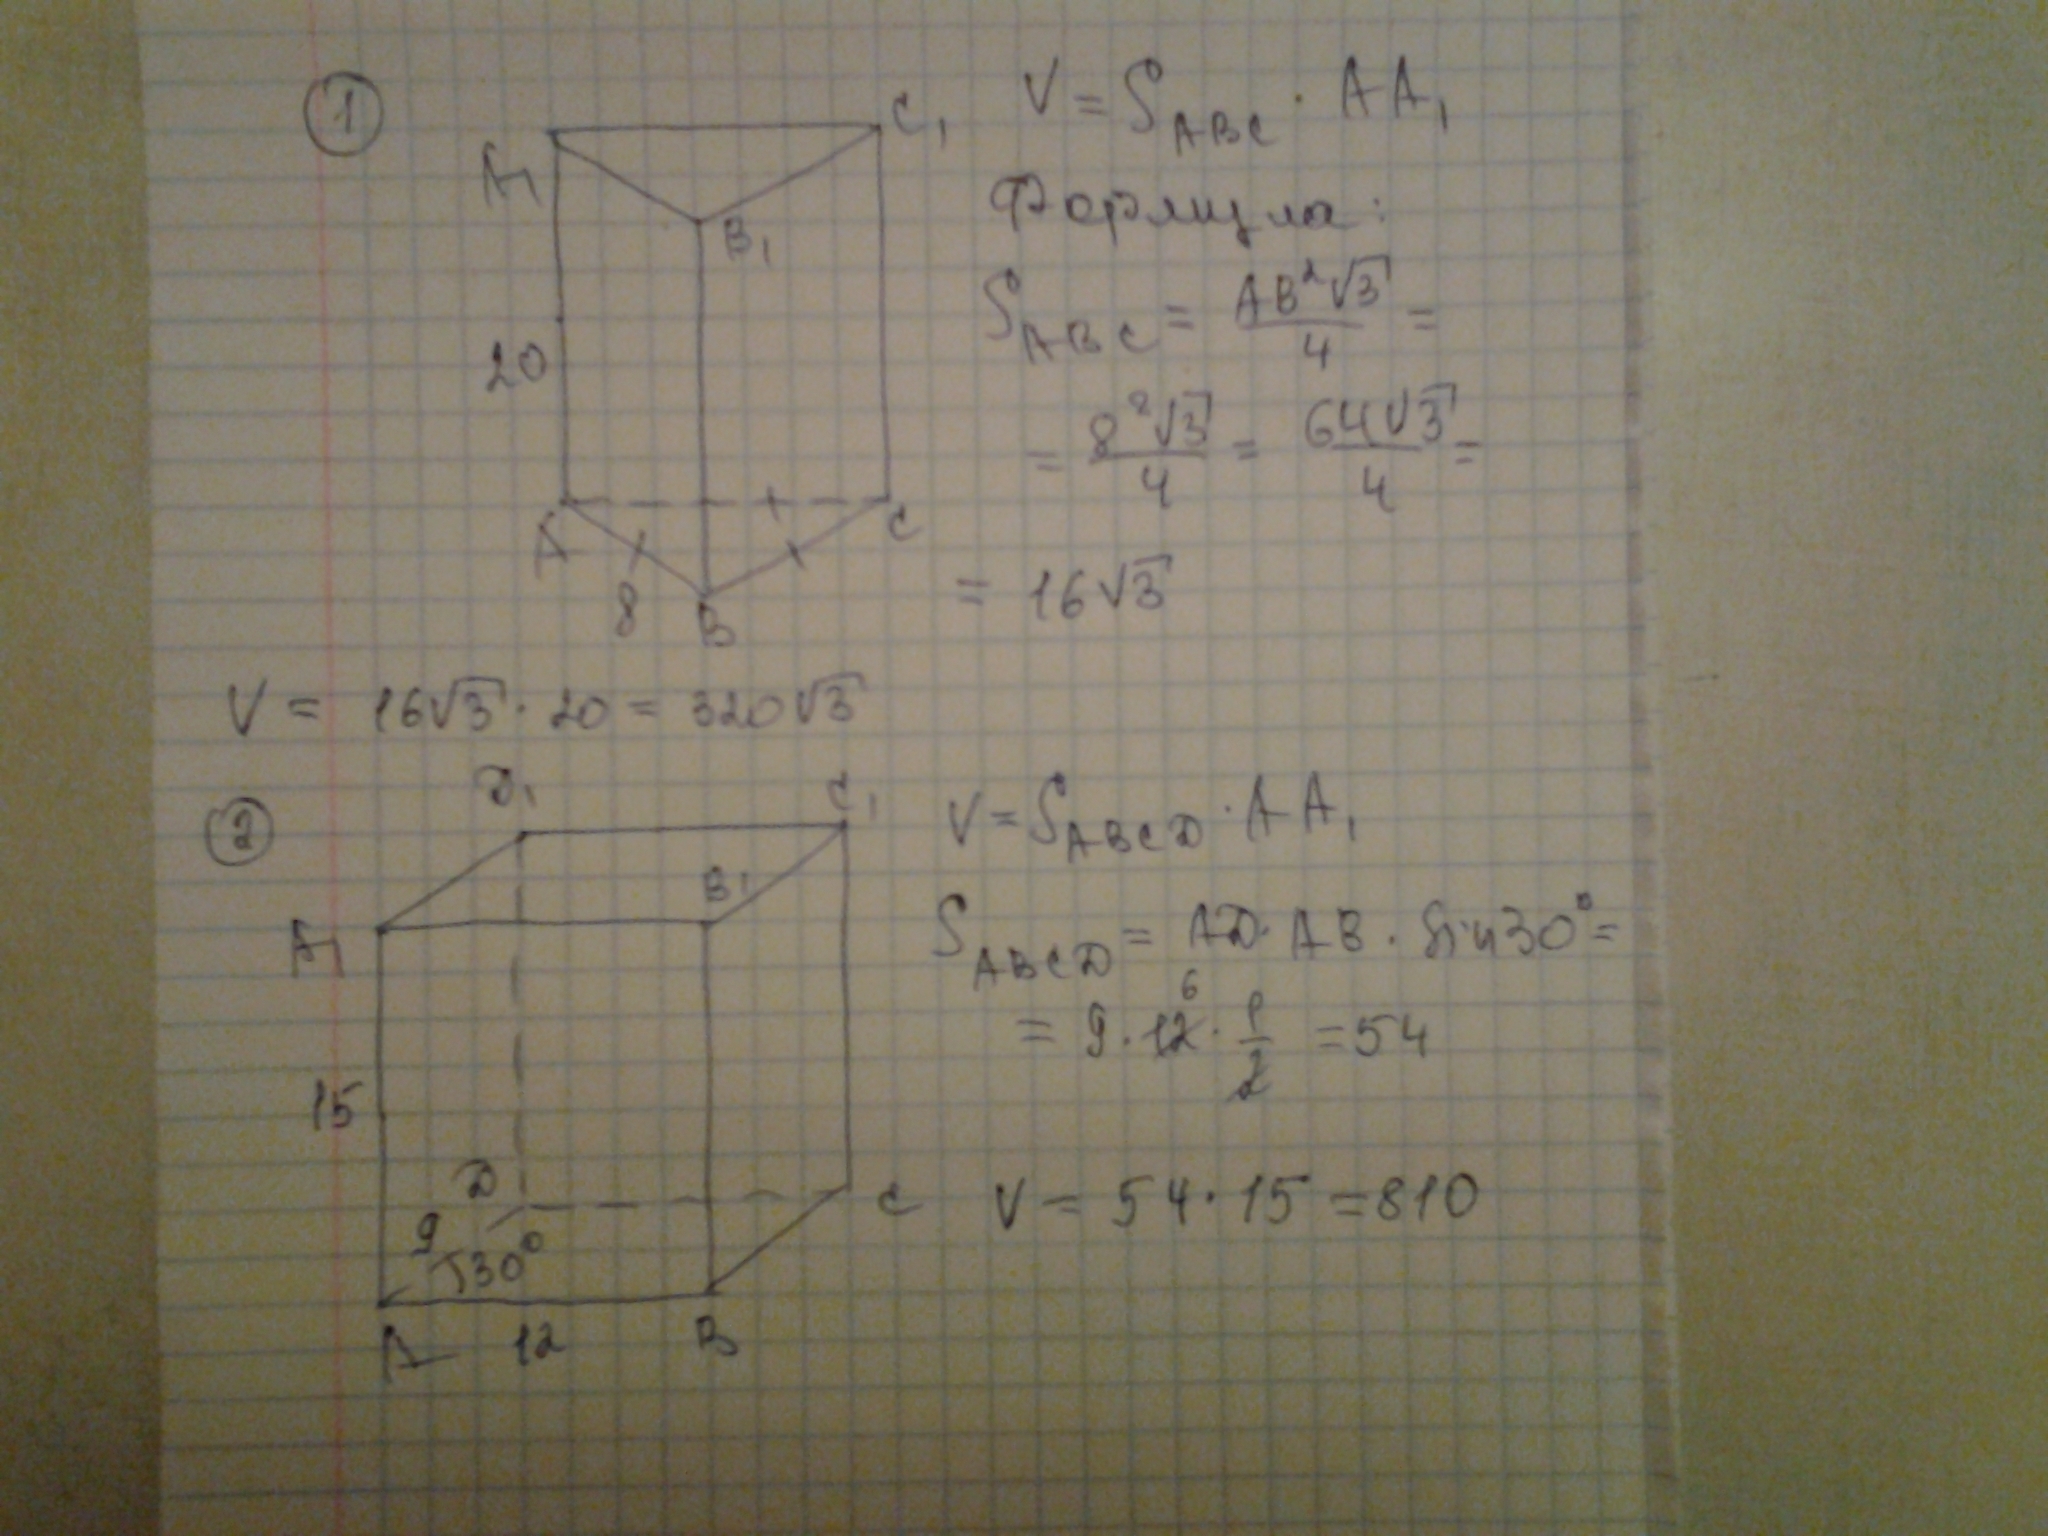 1
A₁
C₁
B₁
20
A
C
8
B
V = S_ABC · AA₁
Формула:
S_ABC = AB²√3/4 =
= 8²√3/4 = 64√3/4 =
= 16√3
V = 16√3 · 20 = 320√3
2
D₁
C₁
B₁
A₁
15
D
C
9
30°
A
12
B
V = S_ABCD · AA₁
S_ABCD = AD · AB · sin30° =
6
= 9 · 12 · 1/2 = 54
V = 54 · 15 = 810